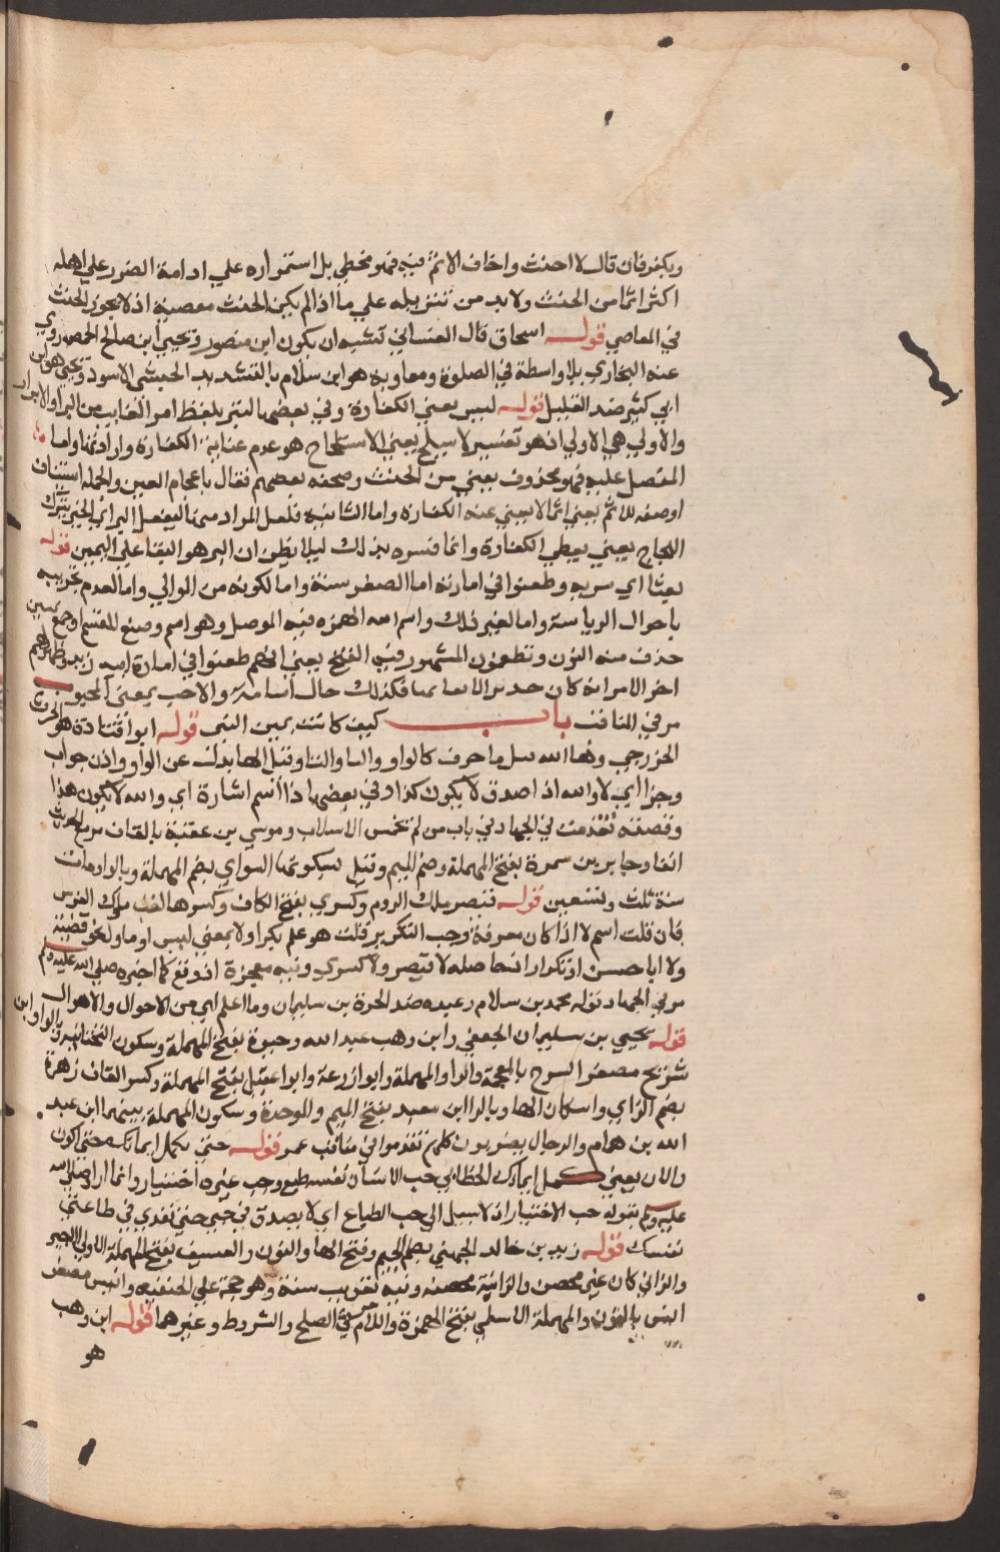 ويكفر فان قال لا احنث واخاف الاثم فيه فهو مخطي بل استمراره علي ادامة الضرر علي اهله
اكثر اثما من الحنث ولا بد من تنزيله علي ما اذا لم يكن الحنث معصية اذ لا يجوز الحنث
في المعاصي قوله اسحاق قال الغساني تشبه ان يكون ابن منصور ويحيي ابن صالح الحمصي روي
عنه البخاري بلا واسطة في الصلوة ومعاوية هو ابن سلام بالتشديد الحبشي الاسود ويحيي هو ابن
ابي كثير ضد القليل قوله ليس يعني الكفارة وفي بعضها ليبر بلفظ امر الغايب من البر او الابرار
والاولي هي الاولي اذ هو تفسير لا سيلج يعني الاستلجاج هو عدم عناية الكفارة وارادتها واما
المفضل عليه فهو محذوف يعني من الحنث وصحفه بعضهم فقال باعجام العين والجمله استيناف
او صفه للاثم يعني اثما لا يغني عنه الكفارة واما الثانيه فلعل المراد منها ليفعل البر اي الخير بترك
اللجاج يعني يعطي الكفارة وانما فسره بذلك ليلا يظن ان البر هو البقا علي اليمين قوله
بعثا اي سريه وطعنوا في امارته اما الصغر سنه واما لكونه من الموالي واما لعدم تجربيه
باحوال الرياسة واما لغير ذلك وايم الله الهمزه فيه الموصل وهو اسم وضع للقسم او جمع يمين
حذف منه النون وتطعنون المشهور فيه الفتح يعني انهم طعنوا في امارة ابيه زيد وظهر لهم
اخر الامر انه كان جديرا لايقا بها فكذلك حال اسامة والاحب بمعني المحبوب
مر في المناقب باب كيف كانت يمين النبي قوله ابو قتادة هو الحرث
الخزرجي وها الله بدل ما حرف كالواو والبا والتا وقيل الها بدلت عن الواو واذن جواب
وجزا اي لا والله اذا صدق لا يكون كذا وفي بعضها ذا اسم اشارة اي والله لا يكون هذا
وقصته تقدمت في الجهاد في باب من لم يخمس الاسلاب وموسي بن عقبة بالقاف مر مع الحديث
انفا وجابر بن سمرة بفتح المهملة وضم الميم وقيل بسكونها السواي بضم المهملة وبالواو مات
سنة ثلث وتسعين قوله قيصر ملك الروم وكسري بفتح الكاف وكسرها لقب ملوك الفرس
فان قلت اسم لا اذا كان معرفة وجب التكرير قلت هو علم نكر او لا بمعني ليس او ماول نحو قضية
ولا ابا حسن او تكرار اذ حاصله لا قيصر ولا كسري وفيه معجزة اذ وقع كما اخبره صلي الله عليه وسلم
مر في الجهاد قوله محمد بن سلام وعبده ضد الحرة بن سليمان وما اعلم اي من الاحوال والاهوال
قوله يحيي بن سليمان الجعفي وابن وهب عبد الله وحيوة بفتح المهملة وسكون التحتانيه وبالواو ابن
شريح مصغر السرح بالمعجمة والراو المهملة وابو زرعة وابو عقيل بفتح المهملة وكسر القاف زهرة
بضم الزاي واسكان الها وبالرا ابن معبد بفتح الميم والموحدة وسكون المهملة بينهما ابن عبد
الله بن هشام والرجال بصريون كلهم تقدموا في مناقب عمر قوله حتي يكمل ايمانك حتي اكون
والان يعني كمل ايمانك الخطابي حب الانسان نفسه طبع وحب غيره اختيار وانما اراد صلي الله
عليه وسلم بقوله حب الاختيار اذ لا سبيل الي حب الطباع اي لا يصدق في حبي حتي تفدي في طاعتي
نفسك قوله زيد بن خالد الجهني بضم الجيم وفتح الها والنون والعسيف بفتح المهملة الاولي الاجير
والزاني كان غير محصن والزانية محصنه وفيه تغريب سنة وهو حجة علي الحنفيه وانيس مصغر
انس بالنون والمهملة الاسلمي بفتح الهمزة واللام مر في الصلح والشروط وغيرهما قوله ابن وهب
هو